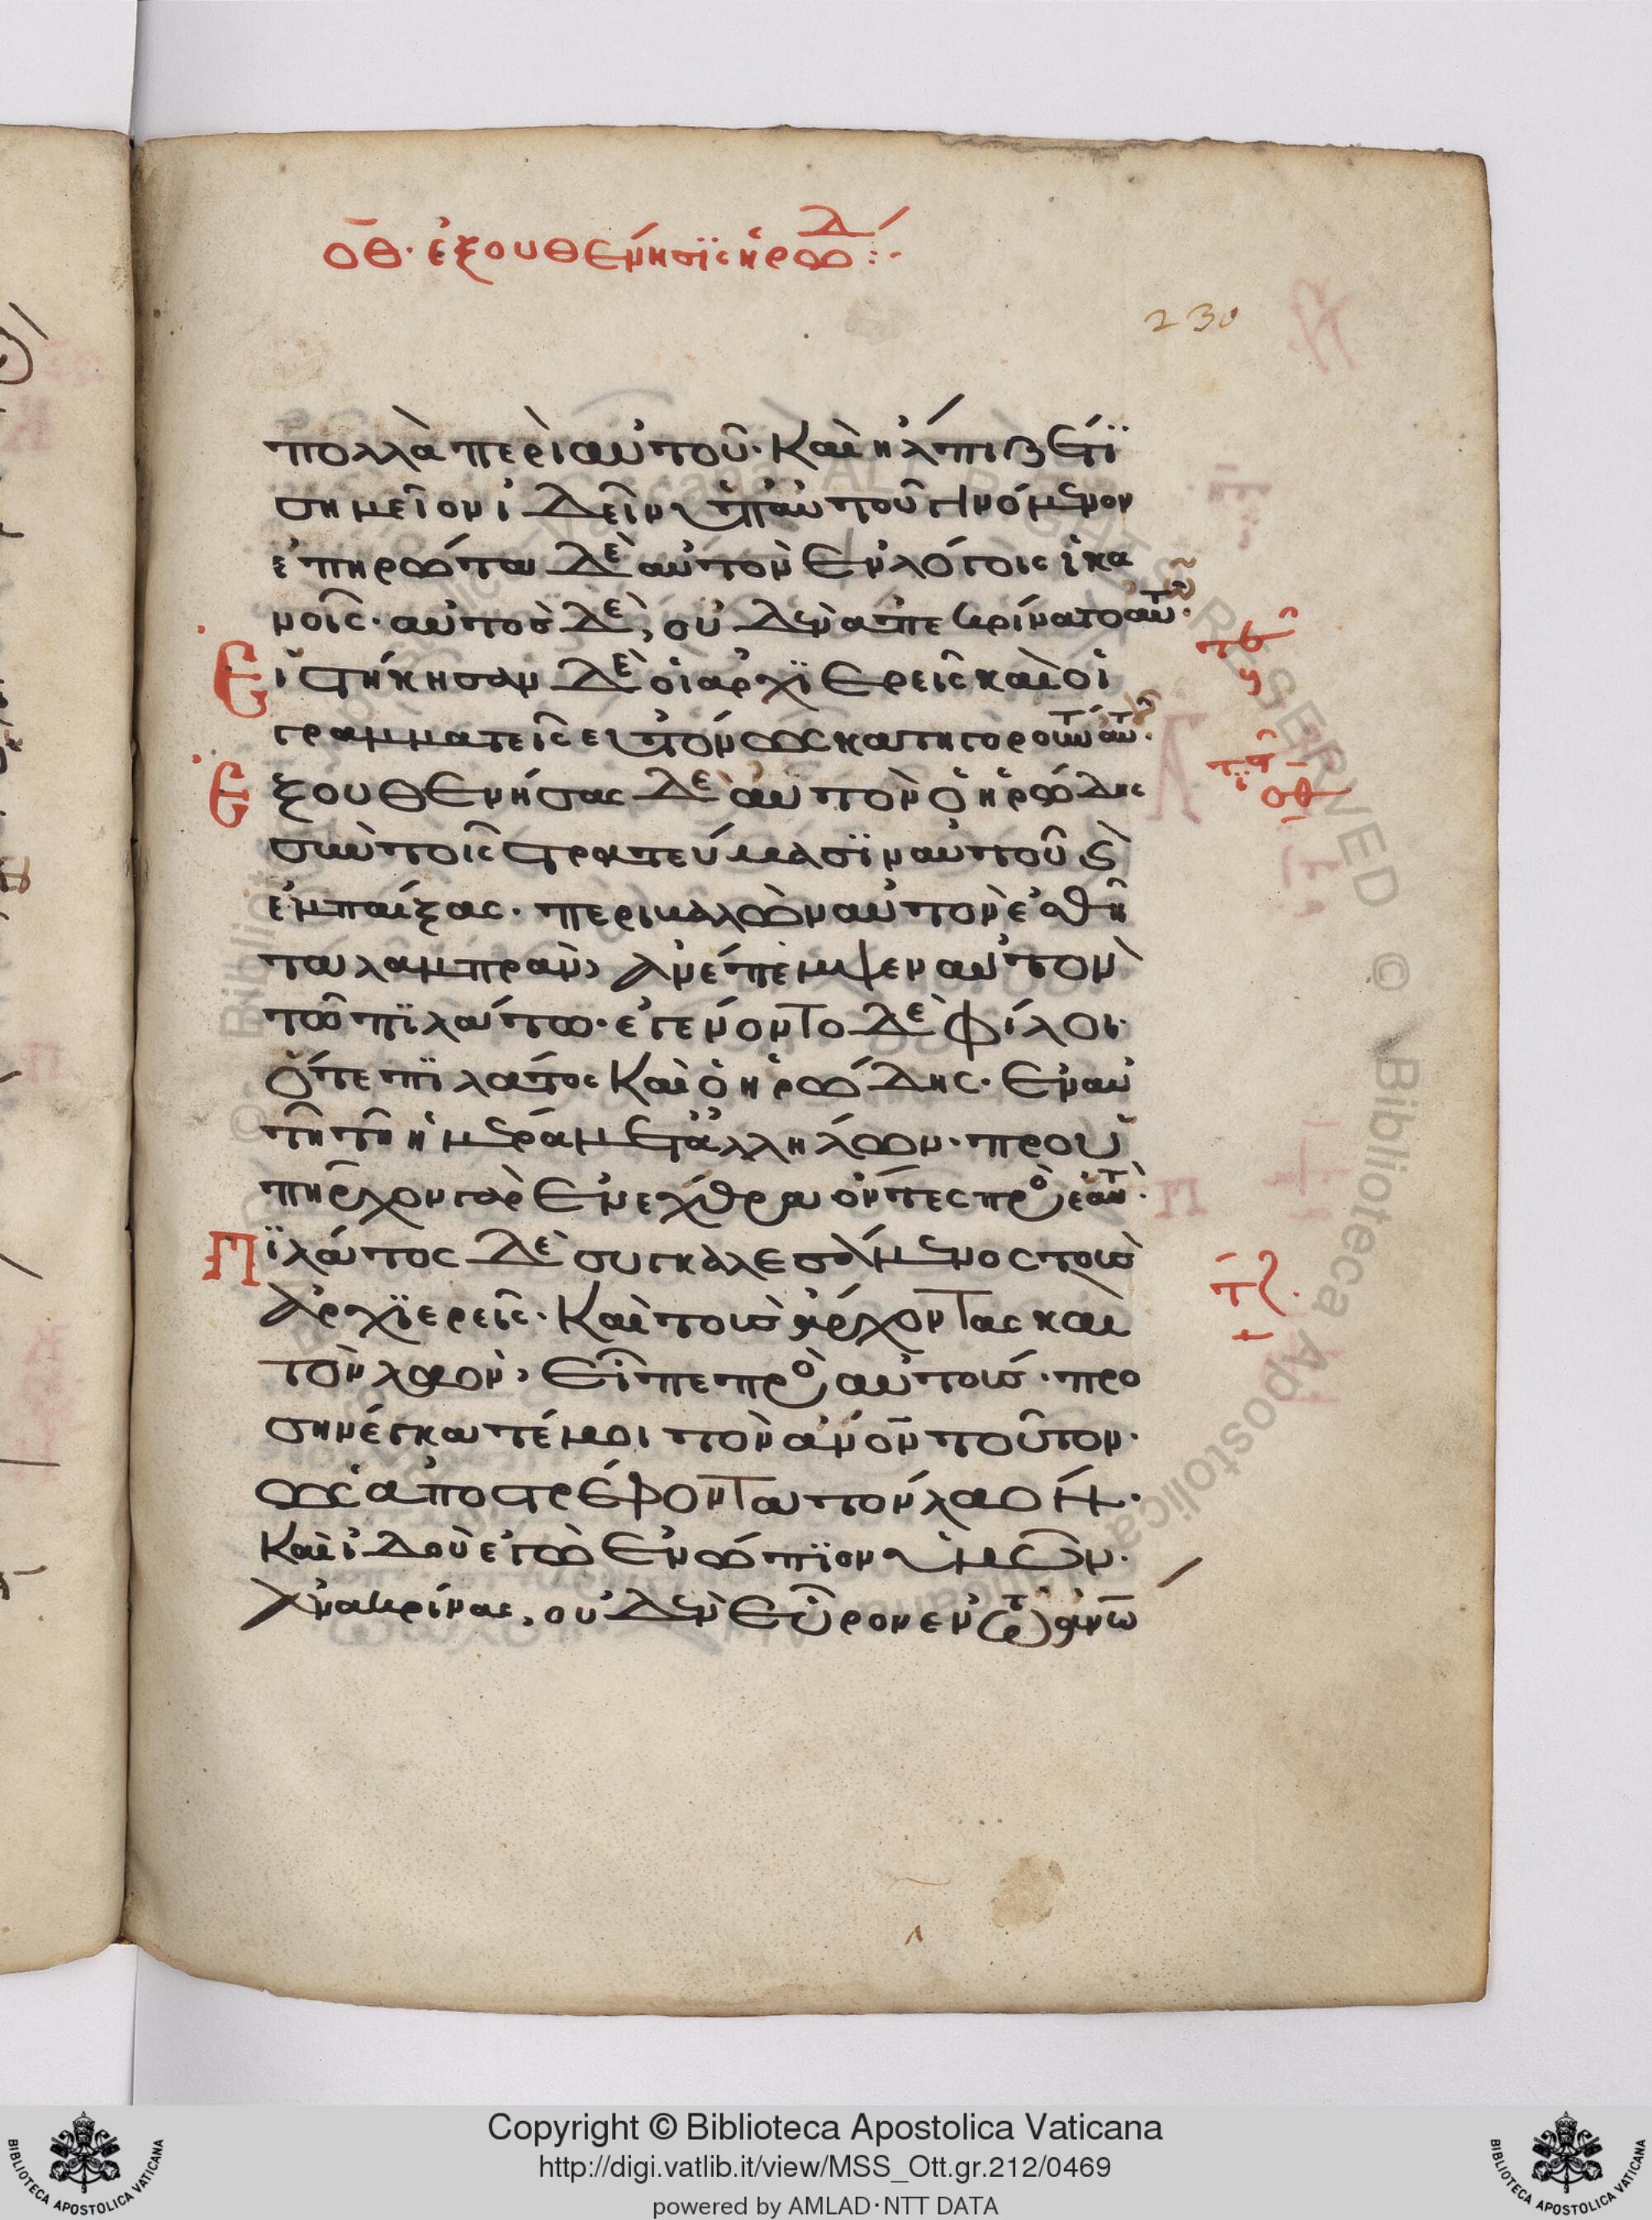 οθ· ἐξουθένησϊς ἡρώδ :·
230
πολλὰ περὶ αὐτοῦ· Καὶ ἤλπιζέ τϊ
σημεῖον ἰδεῖν ὑπ αὐτοῦ γινόμενον
ἐπηρώτα δὲ αὐτὸν ἐν λόγοις ἱκα
νοῖς· αὐτὸσ δὲ, οὐδὲν ἀπεκρίνατο αὐτῶ·
Εἱστήκησαν δὲ οἱ ἀρχϊερεῖς καὶ οἱ
γραμματεῖς εὐτόνως κατηγοροῦντ αὐτοῦ·
Ἐξουθενήσας δὲ αὐτὸν ὁ ἡρώδης
σὺν τοῖς στρατεύμασϊν αὐτοῦ κ
ἐμπαίξας· περιβαλὼν αὐτὸν ἐσθῆ
τα λαμπρὰν, ἀνέπεμψεν αὐτὸν
τῶ πϊλάτω· ἐγένοντο δὲ φίλοι·
ὅτε πϊλάτος Καὶ ὁ ἡρώδης· ἐν αὐ
τῆ τῆ ἡμέρα μετἀλλήλων· προϋ
πῆρχον γὰρ ἐν ἔχθρα ὄντες πρὸ ἑαυτ·
Πϊλάτος δὲ συγκαλεσάμενος τοὺσ
ἀρχϊερεῖς· Καὶ τοὺσ ἄρχοντας καὶ
τὸν λαὸν, εἶπε πρὸ αὐτούσ· προ
σηνέγκατέ μοι τὸν ἀνον τοῦτον·
ὡς ἀποστρέφοντα τὸν λαόν·
Καὶ ἰδοὺ ἐγὼ ἐνώπϊον ὑμῶν·
ἀνακρίνας, οὐδὲν εὗρον ἐν τῶ ἀνω
Copyright © Biblioteca Apostolica Vaticana
http://digi.vatlib.it/view/MSS_Ott.gr.212/0469
powered by AMLAD·NTT DATA
BIBLIOTECA APOSTOLICA VATICANA
BIBLIOTECA APOSTOLICA VATICANA